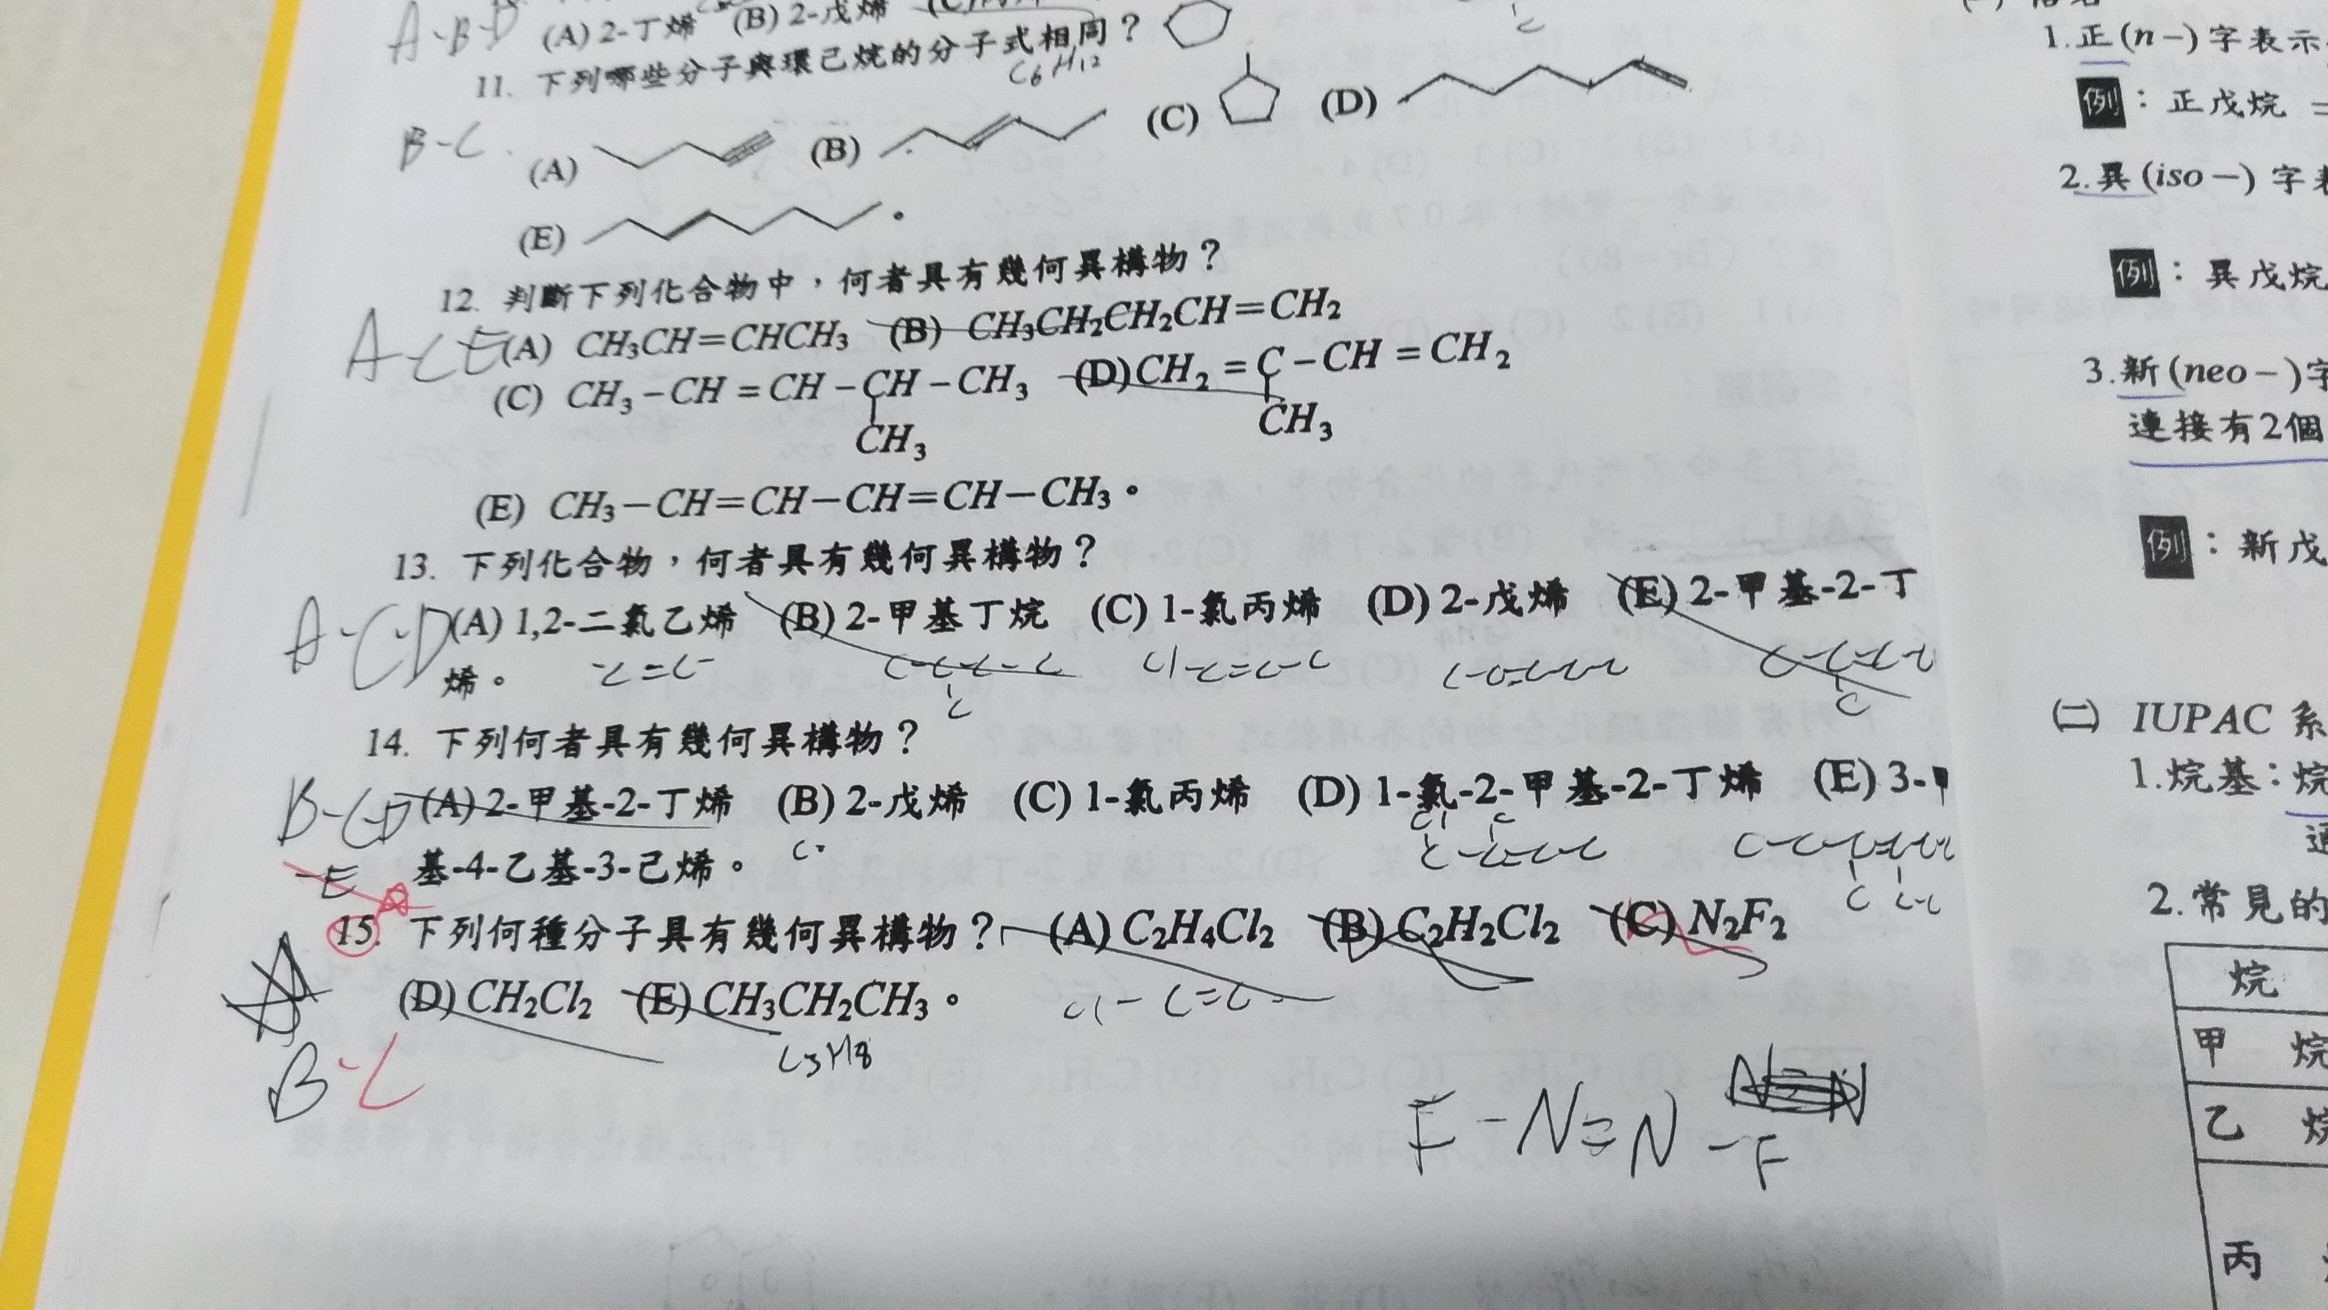 A-B-D (A) 2-丁烯 (B) 2-戊烯
11. 下列哪些分子與環己烷的分子式相同？
C6H12
B-C. (A) (B) (C) (D)
(E) 。
12. 判斷下列化合物中，何者具有幾何異構物？
A-CE (A) CH₃CH=CHCH₃ (B) CH₃CH₂CH₂CH=CH₂
(C) CH₃-CH=CH-CH-CH₃ (D) CH₂=C-CH=CH₂
CH₃ CH₃
(E) CH₃-CH=CH-CH=CH-CH₃。
13. 下列化合物，何者具有幾何異構物？
A-C-D (A) 1,2-二氯乙烯 (B) 2-甲基丁烷 (C) 1-氯丙烯 (D) 2-戊烯 (E) 2-甲基-2-丁
烯。 -C=C- C-C-C-C Cl-C=C-C C-C=C-C-C C-C=C-C
C C
14. 下列何者具有幾何異構物？
B-C-D (A) 2-甲基-2-丁烯 (B) 2-戊烯 (C) 1-氯丙烯 (D) 1-氯-2-甲基-2-丁烯 (E) 3-甲
-E 基-4-乙基-3-己烯。
15. 下列何種分子具有幾何異構物？ (A) C₂H₄Cl₂ (B) C₂H₂Cl₂ (C) N₂F₂
(D) CH₂Cl₂ (E) CH₃CH₂CH₃。 Cl-C=C-
C3H8
B-C
F-N=N-F
1.正(n-)字表示
例：正戊烷 =
2.異(iso-)字
例：異戊烷
3.新(neo-)字
連接有2個
例：新戊
(二) IUPAC 系
1.烷基：烷
2.常見的
烷
甲 烷
乙 烷
丙